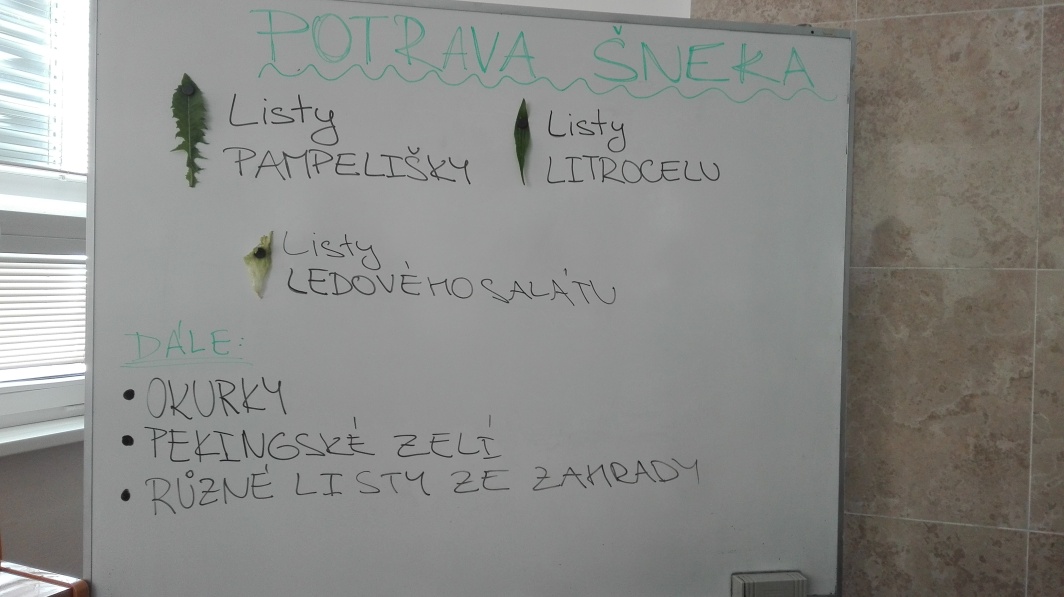 POTRAVA ŠNEKA
Listy
PAMPELIŠKY
Listy
LITROCELU
Listy
LEDOVÉHO SALÁTU
DÁLE:
• OKURKY
• PEKINGSKÉ ZELÍ
• RŮZNÉ LISTY ZE ZAHRADY